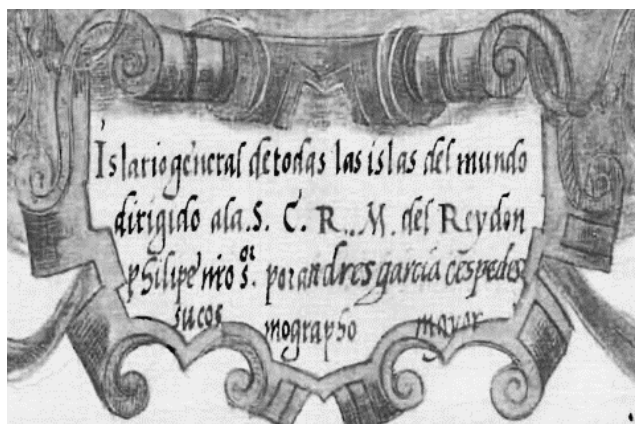 Islario general de todas las islas del mundo
dirigido ala. S. C. R. M. del Rey don
philipe nro s.or por andres garcia cespedes
su cos mographo mayor